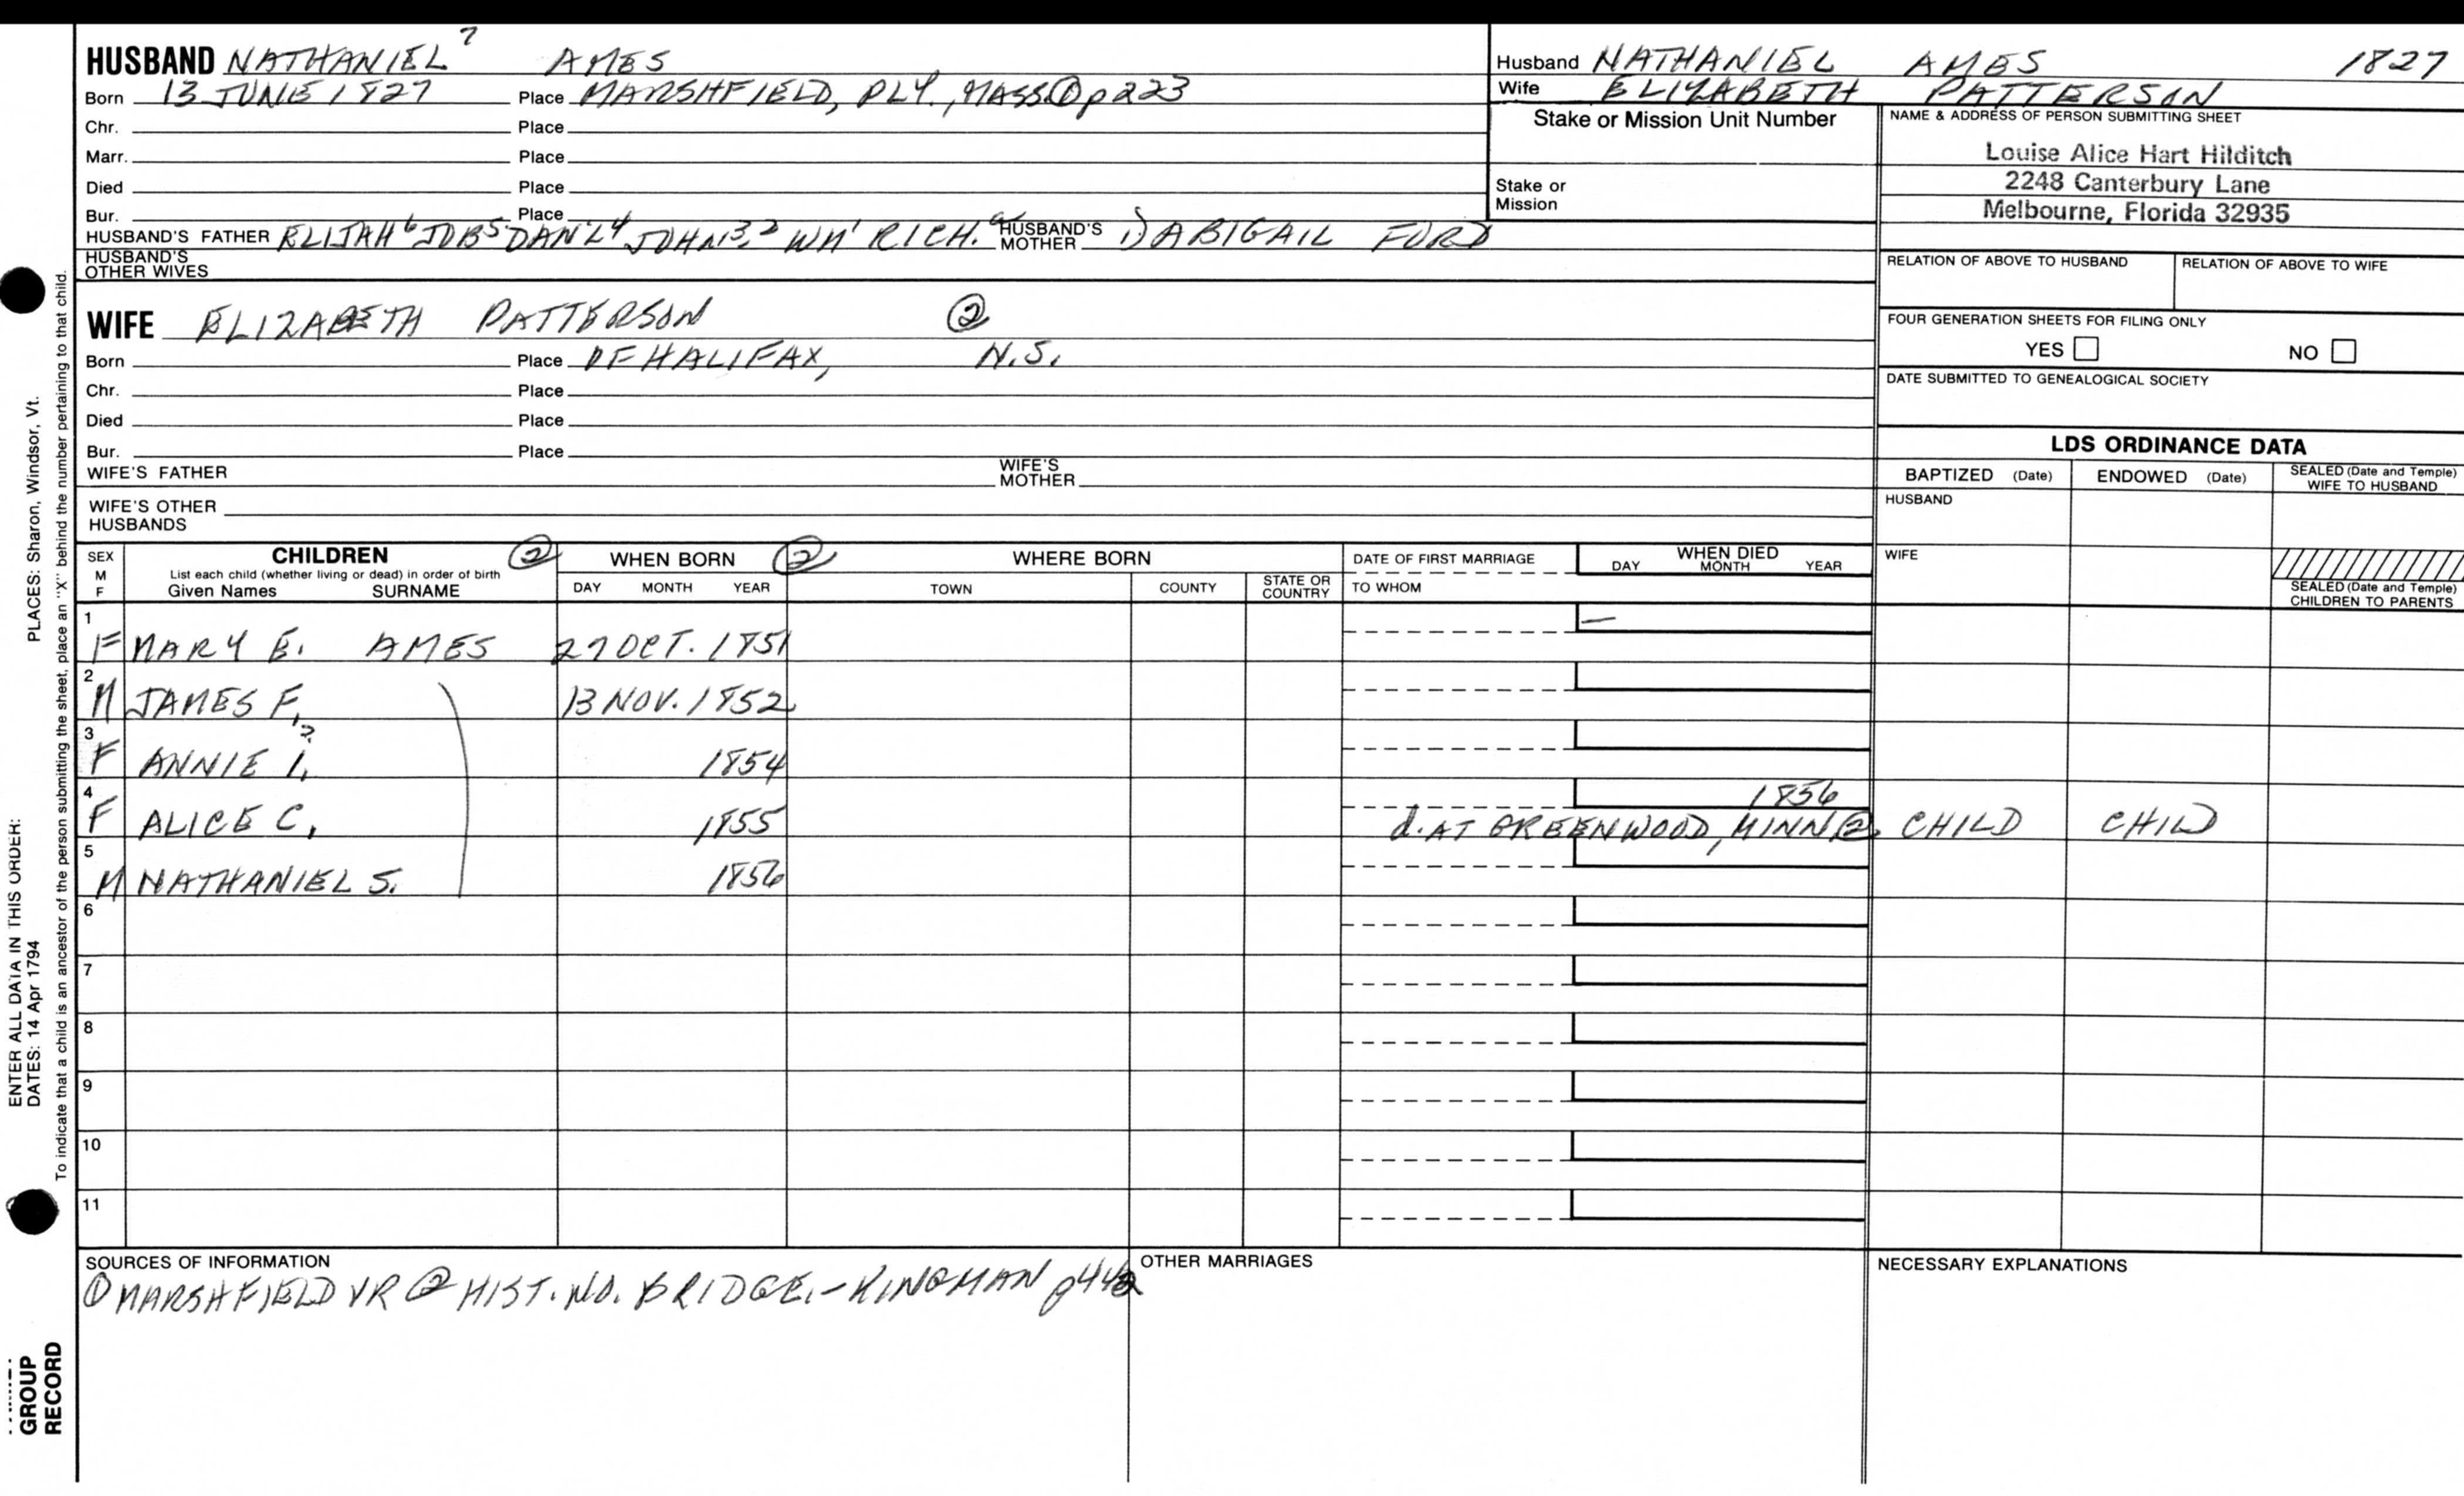 HUSBAND NATHANIEL 7 AMES
Born 13 JUNE 1827 Place MARSHFIELD, PLY., MASS ① p 223
Chr. Place
Marr. Place
Died Place
Bur. Place
HUSBAND'S FATHER ELIJAH 6 JOB 5 DAN'L 4 JOHN 3, 2 WM 1 RICH. a HUSBAND'S MOTHER 1) ABIGAIL FORD
HUSBAND'S OTHER WIVES
Husband NATHANIEL AMES 1827
Wife ELIZABETH PATTERSON
Stake or Mission Unit Number
Stake or Mission
NAME & ADDRESS OF PERSON SUBMITTING SHEET
Louise Alice Hart Hilditch
2248 Canterbury Lane
Melbourne, Florida 32935
RELATION OF ABOVE TO HUSBAND RELATION OF ABOVE TO WIFE
FOUR GENERATION SHEETS FOR FILING ONLY
YES NO
DATE SUBMITTED TO GENEALOGICAL SOCIETY
WIFE ELIZABETH PATTERSON ②
Born Place OF HALIFAX, N.S.
Chr. Place
Died Place
Bur. Place
WIFE'S FATHER WIFE'S MOTHER
WIFE'S OTHER HUSBANDS
LDS ORDINANCE DATA
BAPTIZED (Date) ENDOWED (Date) SEALED (Date and Temple) WIFE TO HUSBAND
HUSBAND
WIFE
SEALED (Date and Temple) CHILDREN TO PARENTS
SEX M F CHILDREN ② WHEN BORN ② WHERE BORN DATE OF FIRST MARRIAGE WHEN DIED
List each child (whether living or dead) in order of birth
Given Names SURNAME DAY MONTH YEAR TOWN COUNTY STATE OR COUNTRY TO WHOM DAY MONTH YEAR
1 F MARY E. AMES 27 OCT. 1851 —
2 M JAMES F. 13 NOV. 1852
3 F ANNIE I. ? 1854
4 F ALICE C. 1855 1856
d. AT GREENWOOD, MINN ② CHILD CHILD
5 M NATHANIEL S. 1856
6
7
8
9
10
11
SOURCES OF INFORMATION
① MARSHFIELD VR ② HIST. NO. BRIDGE. - KINGMAN
OTHER MARRIAGES
NECESSARY EXPLANATIONS
PLACES: Sharon, Windsor, Vt.
ENTER ALL DATA IN THIS ORDER:
DATES: 14 Apr 1794
To indicate that a child is an ancestor of the person submitting the sheet, place an "X" behind the number pertaining to that child.
GROUP
RECORD